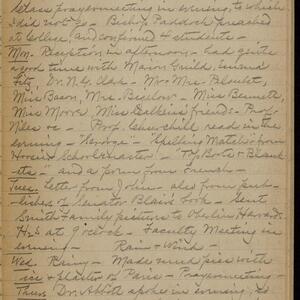 Class prayermeeting in evening, to which
I did not go - Bishop Paddock preached
at College and confirmed 4 students -
Mon. Reception in afternoon - had quite
a good time with Major Guild, Emma
Fitz, Dr. N.G. Clark - Mr + Mrs.
Miss Bacon, Mrs. Bigelow - Miss Bennett
Miss Moore, Miss Calkins' friends - Prof.
Niles &c - Prof. Churchill read in the
evening - "Spelling Match" from
Hoosier Schoolmaster -
and a poem from French -
Tues. Letter from John - also from pub-
lishers of Senator Blair's book - Sent
Smith Family pictures to Oberlin
at 9 o'clock - Faculty Meeting in
evening - Rain + Wind -
Wed. Rainy - Made mud pies with
ice + plaster of Paris - Prayermeeting -
Thurs. Dr. Abbott spoke in evening, as